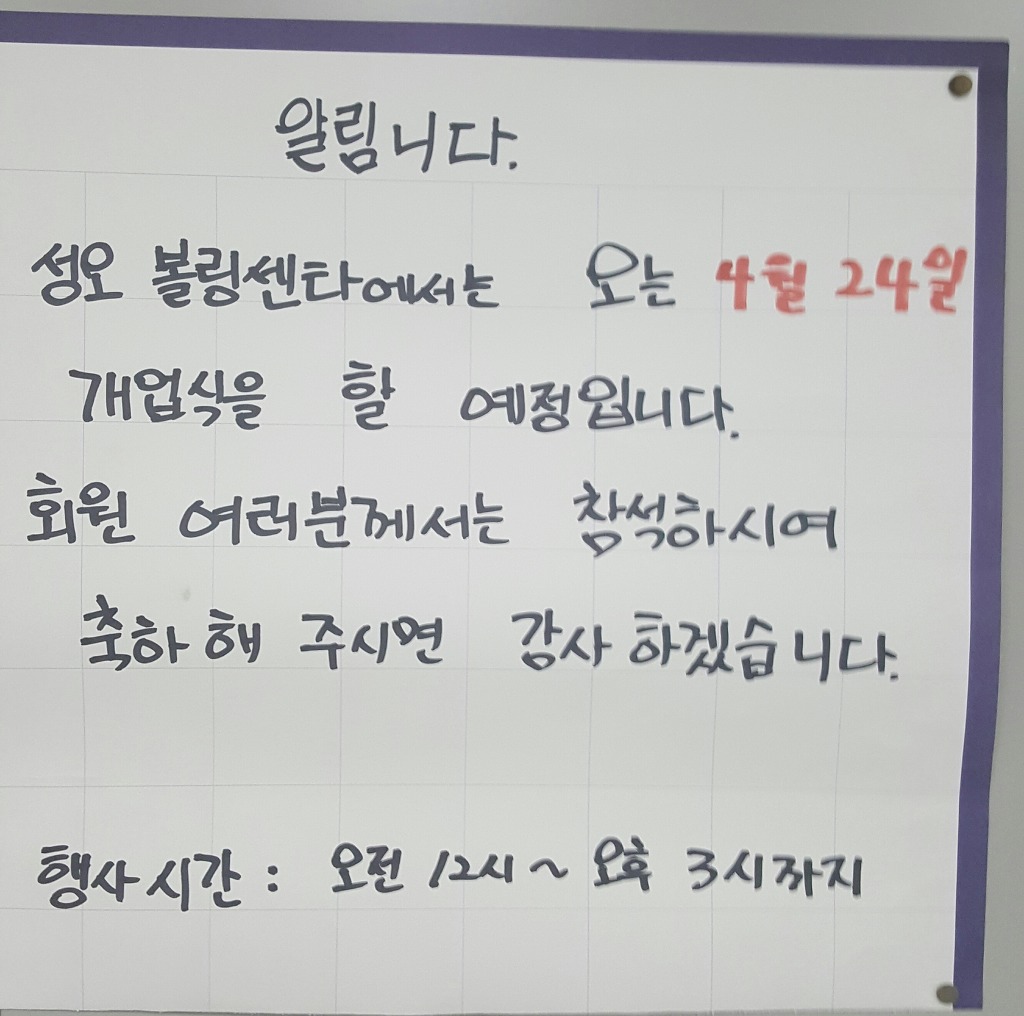 알림니다.
성오 볼링센타에서는 오는 4월 24일
개업식을 할 예정입니다.
회원 여러분께서는 참석하시여
축하 해 주시면 감사 하겠습니다.
행사시간 : 오전 12시 ~ 오후 3시까지